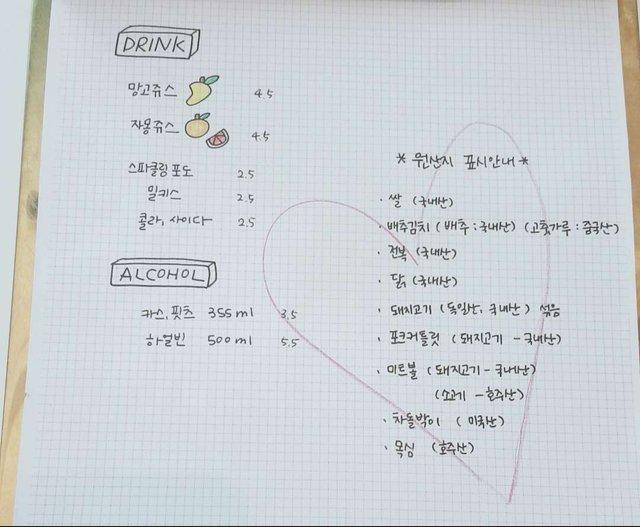 DRINK
망고쥬스 4.5
자몽쥬스 4.5
스파클링포도 2.5
밀키스 2.5
콜라, 사이다 2.5
ALCOHOL
카스, 핏츠 355ml 3.5
하얼빈 500ml 5.5
* 원산지 표시안내 *
· 쌀 (국내산)
· 배추김치 (배추 : 국내산) (고춧가루 : 중국산)
· 전복 (국내산)
· 닭 (국내산)
· 돼지고기 (독일산, 국내산) 섞음
· 포크커틀릿 (돼지고기 - 국내산)
· 미트볼 (돼지고기 - 국내산)
(소고기 - 호주산)
· 차돌박이 (미국산)
· 목심 (호주산)